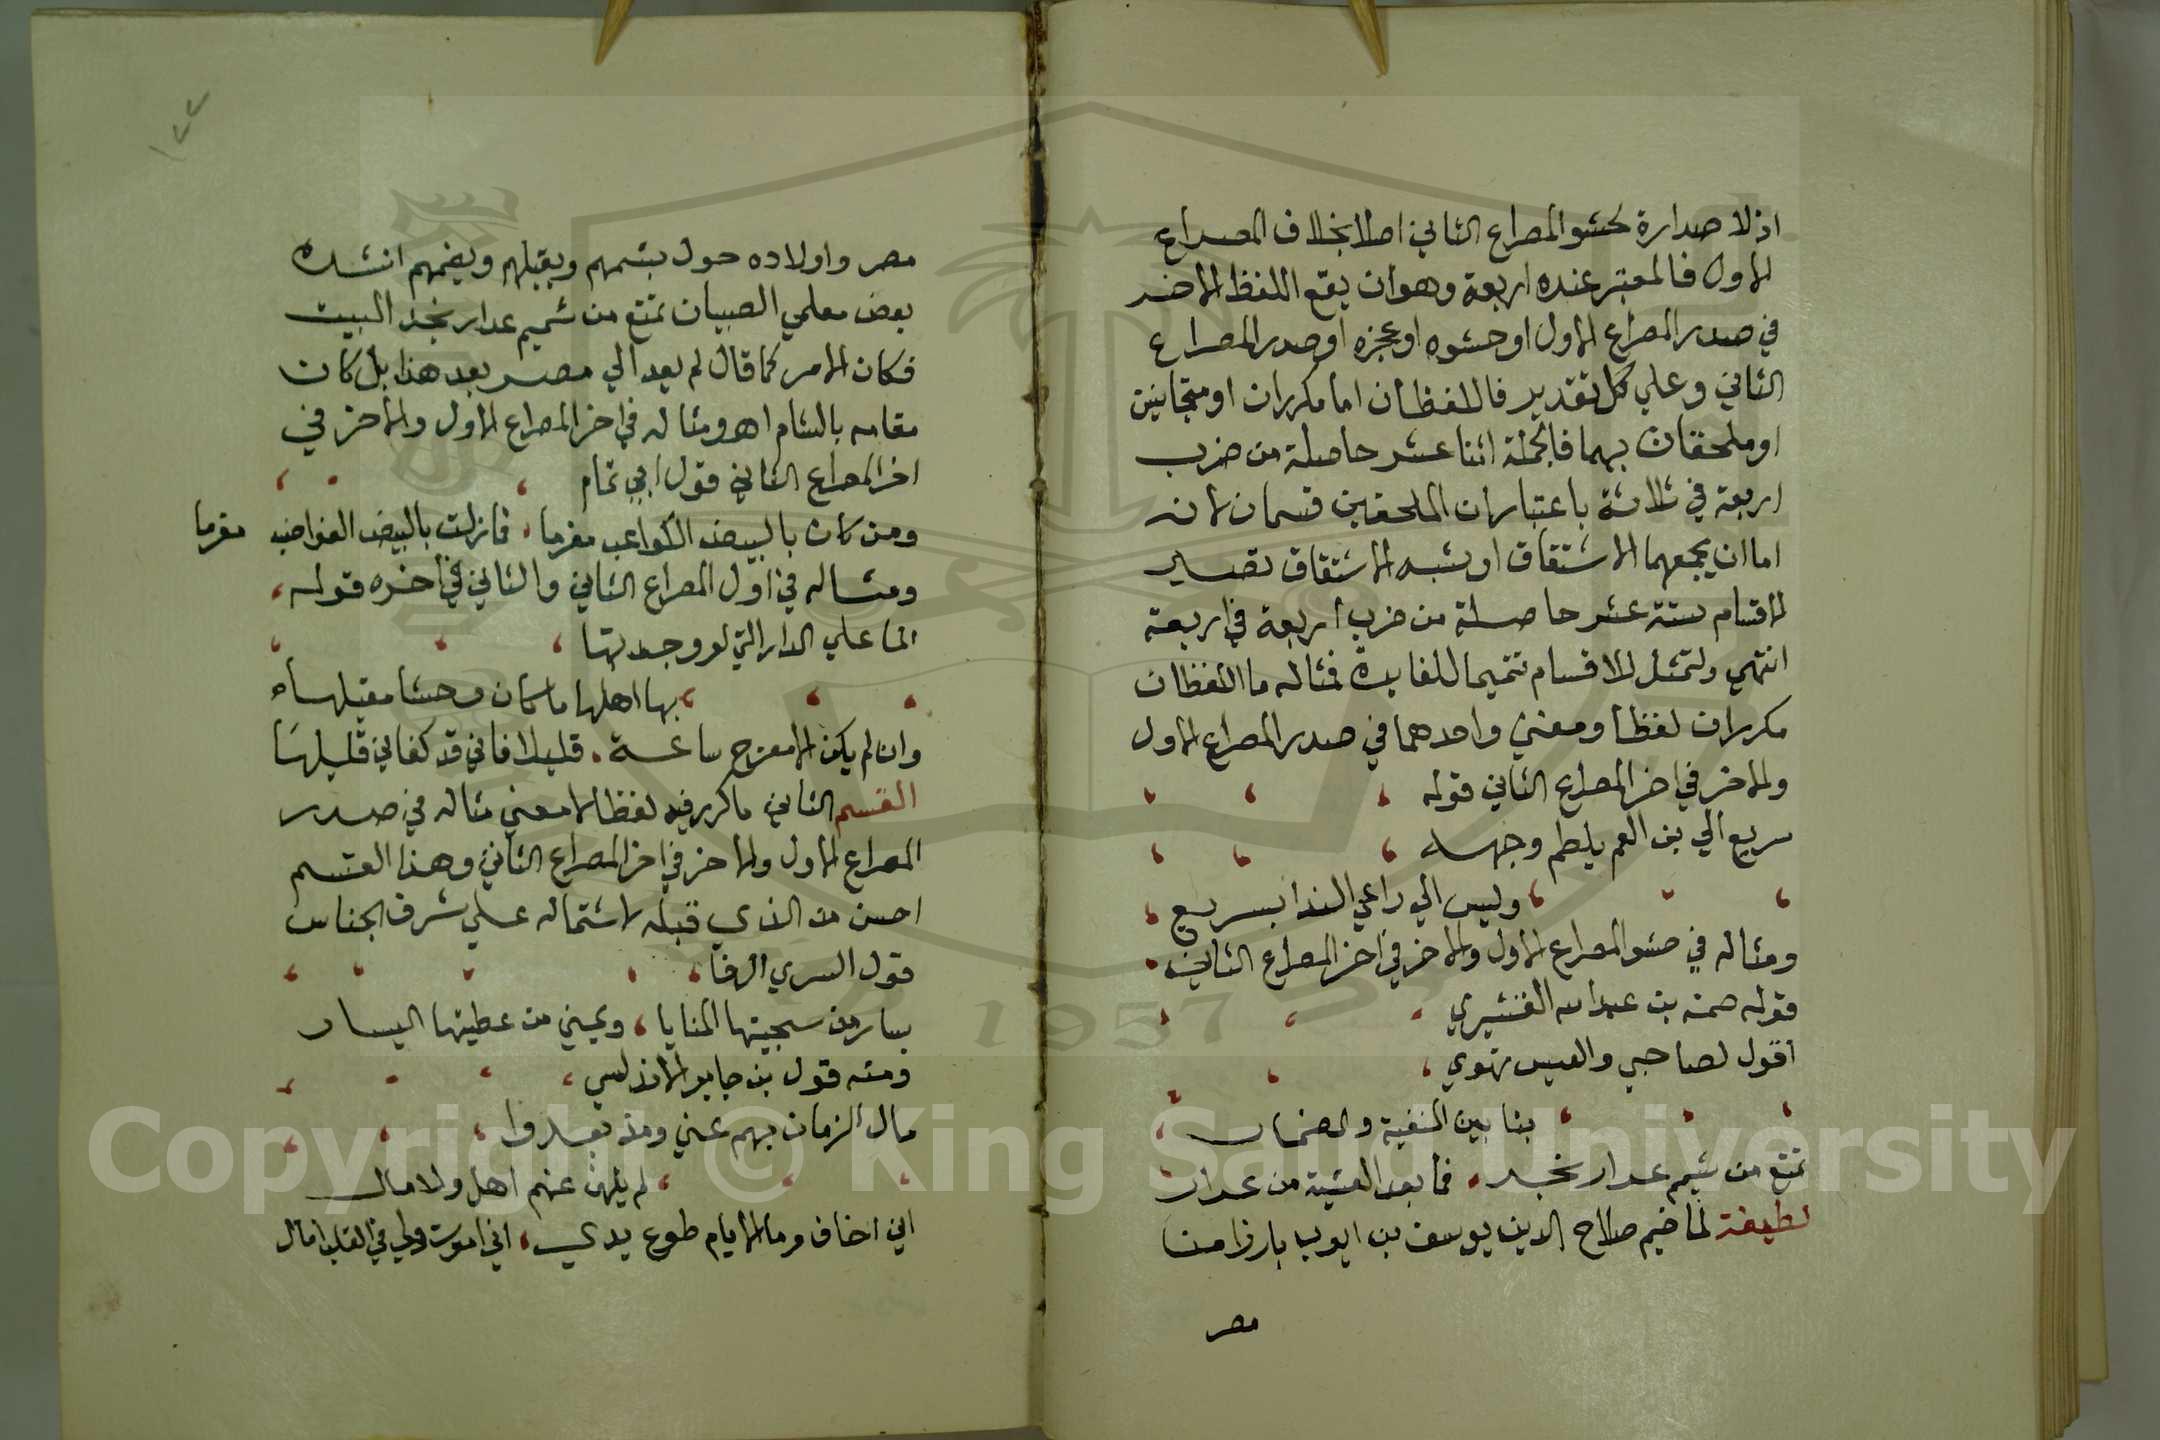 اذ لا صدارة لحشو المصراع الثاني اصلا بخلاف المصراع
الاول فالمعتبر عنده اربعة وهو ان يقع اللفظ الاخر
في صدر المصراع الاول او حشوه او عجزه او صدر المصراع
الثاني وعلي كل تقدير فاللفظان اما مكرران او متجانين
او ملحقان بهما فالجملة اثنا عشر حاصلة من ضرب
اربعة في ثلاثة باعتبار ان الملحقين قسمان لانه
اما ان يجمعهما الاشتقاق او شبه الاشتقاق تصير
الاقسام ستة عشر حاصلة من ضرب اربعة في اربعة
انتهي ولنمثل للاقسام تتميما للفايدة فمثاله ما اللفظان
مكرران لفظا ومعني واحدهما في صدر المصراع الاول
والاخر في اخر المصراع الثاني قوله
سريع الي بن العم يلطم وجهه
وليس الي داعي الندا بسريع
ومثاله في حشو المصراع الاول والاخر في اخر المصراع الثاني
قوله صمة بن عبد الله القشيري
اقول لصاحبي والعيس تهوي
بنا بين المنفية والضمار
تمتع من شميم عرار نجد فما بعد العشية من عرار
لطيفة لما خيم صلاح الدين يوسف بن ايوب بارزا من
مصر
١٢٢
مصر واولاده حول بشمهم ويقبلهم ويضمهم انشده
بعض معلمي الصبيان تمتع من شميم عرار نجد البيت
فكان الامر كما قال لم يعد الي مصر بعد هذا بل كان
مقامه بالشام اهـ ومثاله في اخر المصراع الاول والاخر في
اخر المصراع الثاني قول ابي تمام
ومن كان بالبيض الكواعب مغرما فما زلت بالبيض القواضب مغرما
ومثاله في اول المصراع الثاني والثاني في اخره قوله
الما علي الدار التي لو وجدتها
بها اهلها ما كان وحشا مقيلها
وان لم يكن الا معرج ساعة قليلا فاني قد كفاني قليلها
القسم الثاني ما كرر فيه لفظا لا معني مثاله في صدر
المصراع الاول والاخر في اخر المصراع الثاني وهذا القسم
احسن من الذي قبله لاشتماله علي شرف الجناس
قول السري الرفا
يسار من سجيتها المنايا ويمني من عطيتها اليسار
ومنه قول بن جابر الاندلسي
مال الزمان بهم عني ومذ بعدوا
لم يلهن عنهم اهل ولا مال
اني اخاف وما الايام طوع يدي اني اموت ولي في القلب امال